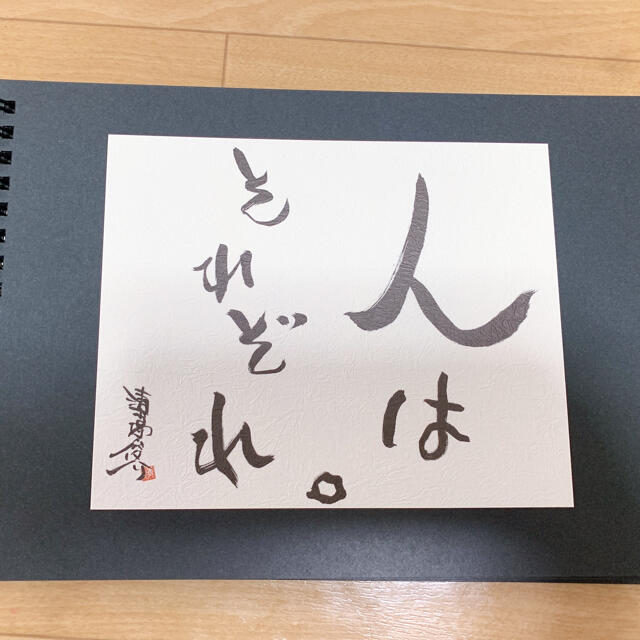 人は
それぞれ。